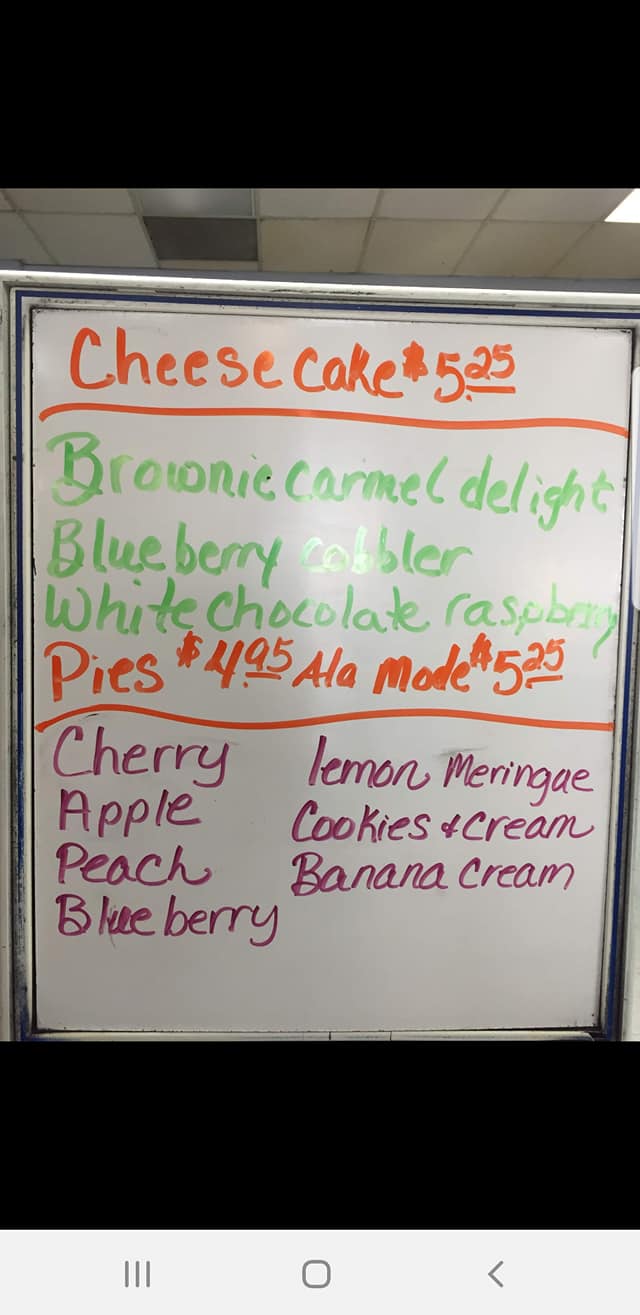 Cheese Cake $5.25
Brownie carmel delight
Blueberry cobbler
White chocolate raspberry
Pies $4.95 Ala Mode $5.25
Cherry
Apple
Peach
Blueberry
lemon Meringue
Cookies & Cream
Banana Cream